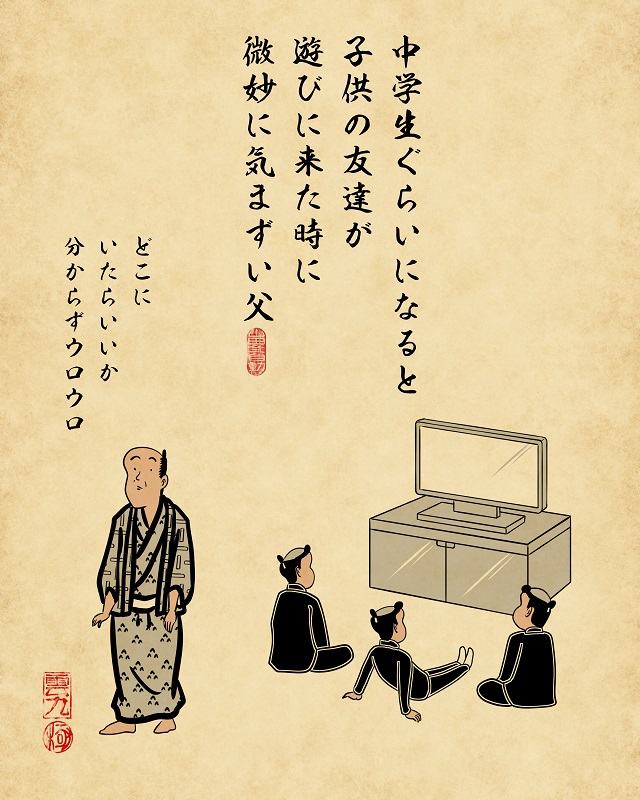 中学生ぐらいになると
子供の友達が
遊びに来た時に
微妙に気まずい父
どこに
いたらいいか
分からずウロウロ